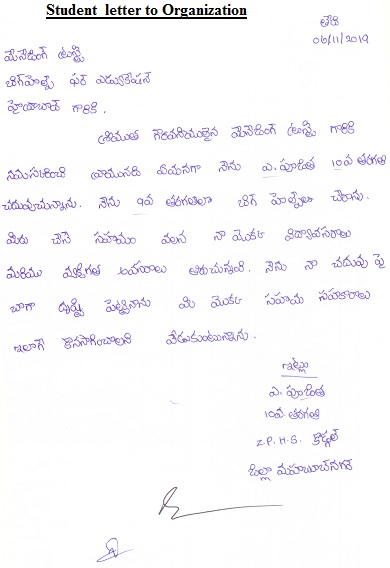 Student letter to Organization
తేది
06/11/2019
మేనేజింగ్ ట్రస్టీ
బిగ్‌హెల్ప్ ఫర్ ఎడ్యుకేషన్
హైదరాబాద్ గారికి.
శ్రీయుత గౌరవనీయులైన మేనేజింగ్ ట్రస్టీ గారికి
నమస్కరించి వ్రాయునది ఏమనగా నేను ఎ. పూజిత 10వ తరగతి
చదువుచున్నాను. నేను 9వ తరగతిలో బిగ్ హెల్ప్‌లో చేరాను.
మీరు చేసే సహాయం వలన నా యొక్క విద్యావసరాలు
మరియు వ్యక్తిగత అవసరాలు తీరుచున్నవి. నేను నా చదువు పై
బాగా దృష్టి పెట్టినాను మీ యొక్క సహాయ సహకారాలు
ఇలాగే కొనసాగించాలని వేడుకుంటున్నాను.
ఇట్లు
ఎ. పూజిత
10వ తరగతి
Z.P.H.S.
జిల్లా మహబూబ్‌నగర్